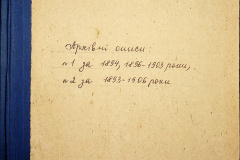 Архівні описи
№1 за 1894, 1896-1903 роки,
№2 за 1893-1906 роки